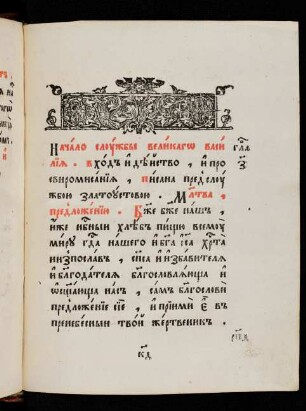 Начало слꙋжбы великагѡ васи гла҃
лїѧ. входъ и дѣиство, и про з҃
скѵромисанїѧ, писана пред слꙋ
жбою златоꙋстовою. Мл҃тва,
предложенїю. Бж҃е бж҃е нашъ,
иже нб҃ныи хлѣбъ пищꙋ всемꙋ
мирꙋ гд҃а нашего и бг҃а іс҃а хрⷭ҇та
низпославъ, сп҃са и избавителѧ
и благодателѧ благословѧща и
ѡсщ҃ающа насъ, самъ благослови
предложенїе сїе, и прїими є҆̀ въ
пренебесныи твои жертвеникъ.
к҃д